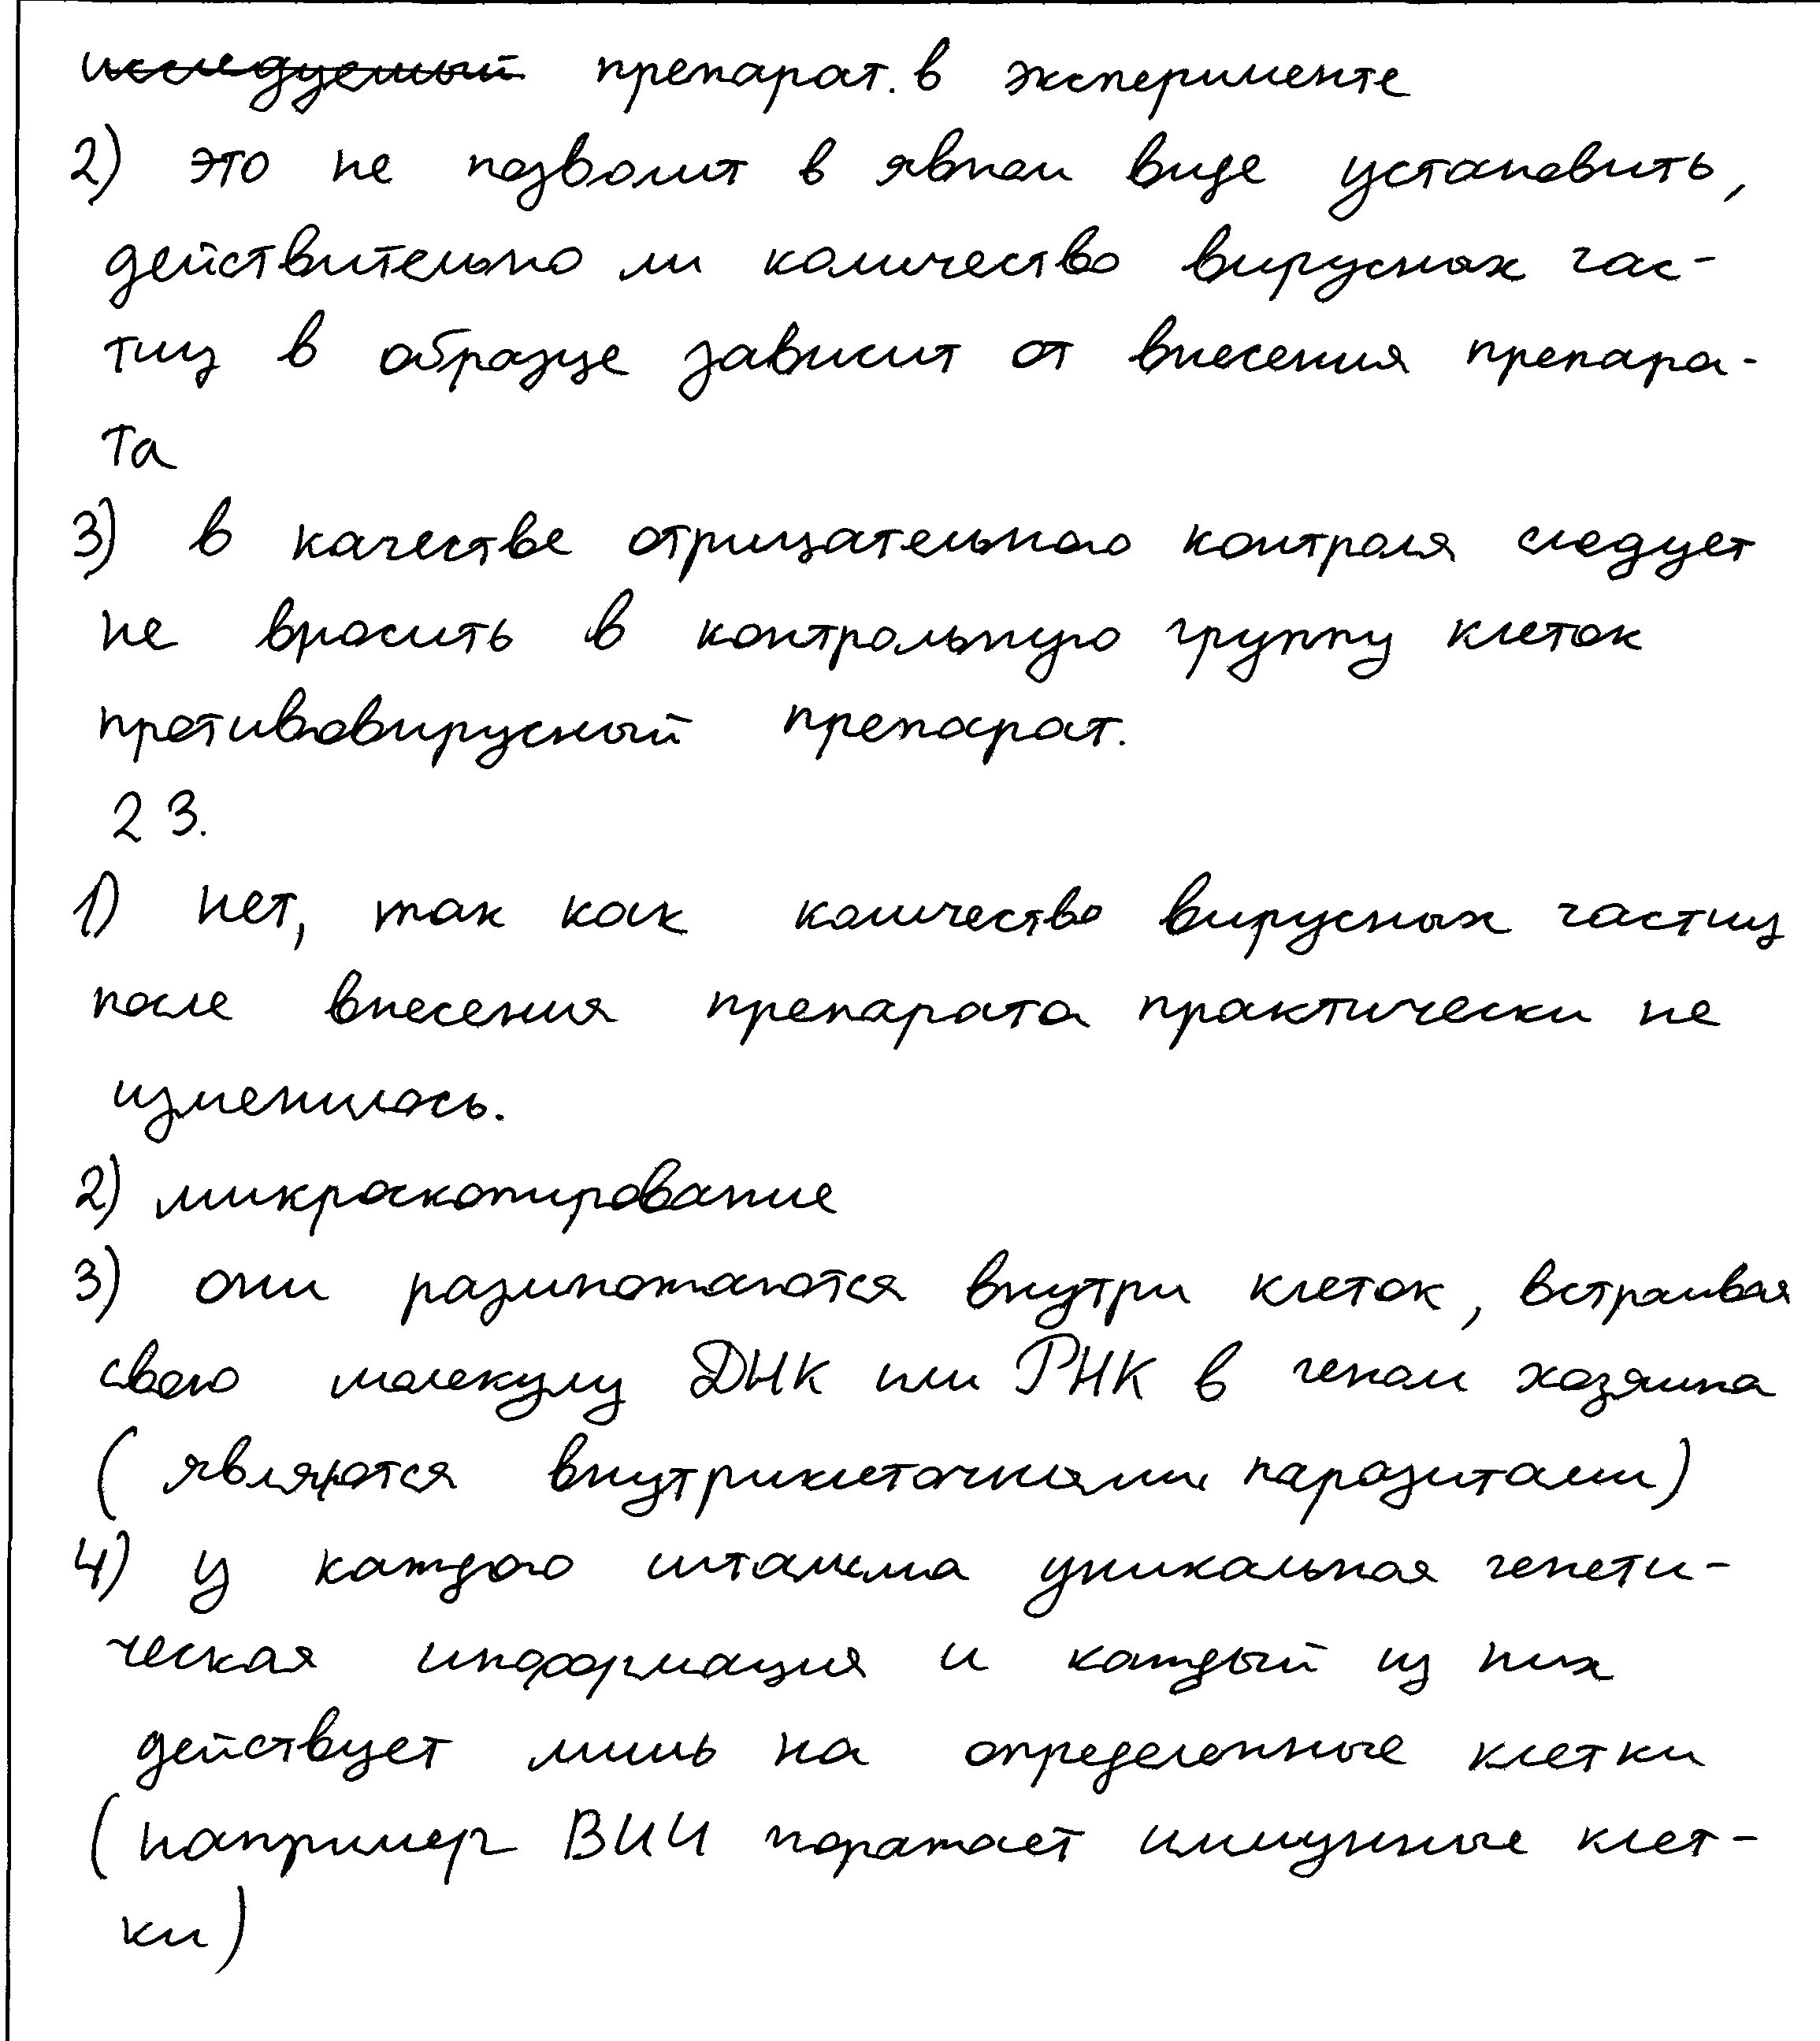 исследуемый препарат. в эксперименте
2) это не позволит в явном виде установить,
действительно ли количество вирусных час-
тиц в образце зависит от внесения препара-
та
3) в качестве отрицательного контроля следует
не вносить в контрольную группу клеток
противовирусный препарат.
23.
1) нет, так как количество вирусных частиц
после внесения препарата практически не
изменилось.
2) микроскопирование
3) они размножаются внутри клеток, встраивая
свою молекулу ДНК или РНК в геном хозяина
(являются внутриклеточными паразитами)
4) у каждого штамма уникальная генети-
ческая информация и каждый из них
действует лишь на определенные клетки
(например ВИЧ поражает иммунные клет-
ки)